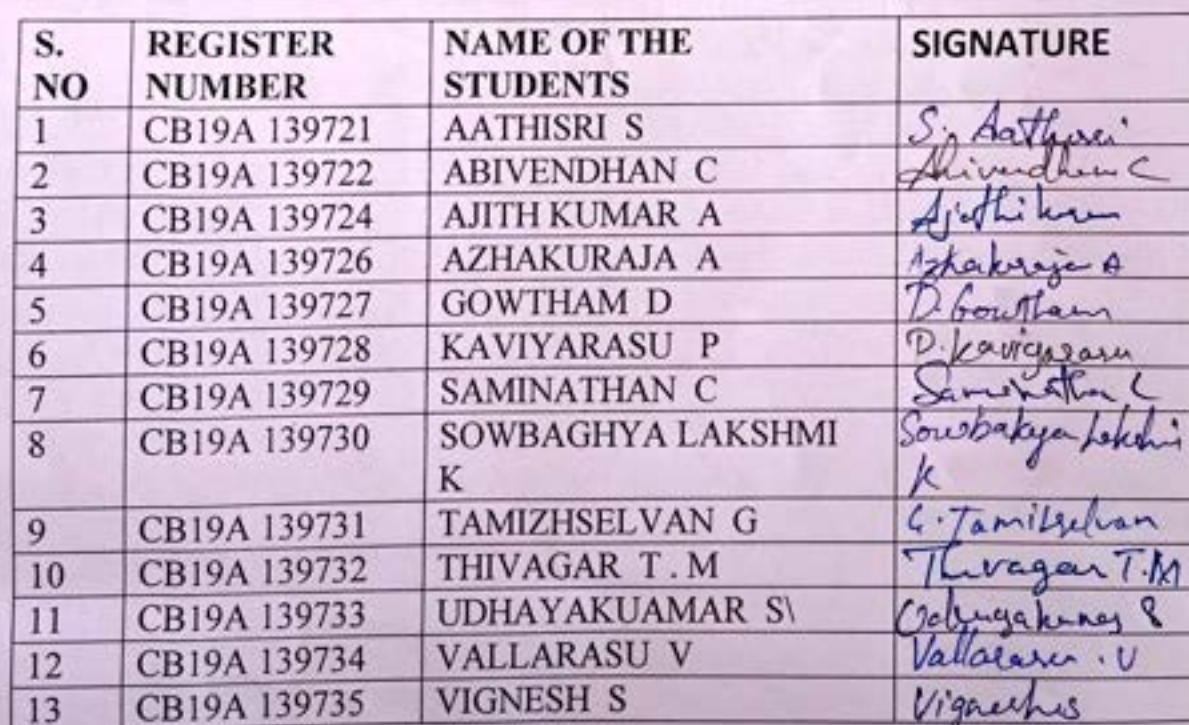 S. NO REGISTER NUMBER NAME OF THE STUDENTS SIGNATURE
1 CB19A 139721 AATHISRI S S. Aathisri
2 CB19A 139722 ABIVENDHAN C Abivendhan C
3 CB19A 139724 AJITH KUMAR A
4 CB19A 139726 AZHAKURAJA A Azhakuraja A
5 CB19A 139727 GOWTHAM D D. Gowtham
6 CB19A 139728 KAVIYARASU P
7 CB19A 139729 SAMINATHAN C
8 CB19A 139730 SOWBAGHYA LAKSHMI
K K
9 CB19A 139731 TAMIZHSELVAN G G. Tamilselvan
10 CB19A 139732 THIVAGAR T . M Thivagar T.M
11 CB19A 139733 UDHAYAKUAMAR S\
12 CB19A 139734 VALLARASU V Vallarasu . V
13 CB19A 139735 VIGNESH S